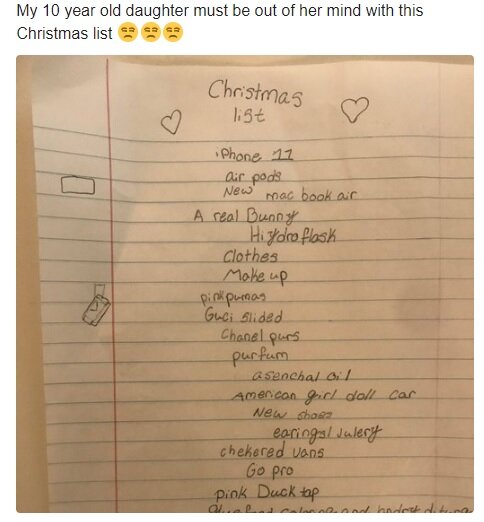 My 10 year old daughter must be out of her mind with this
Christmas list 😒😒😒
Christmas
list
iPhone 11
air pods
New mac book air
A real Bunny
Hydro flask
Clothes
Make up
pink pumas
Guci slided
Chanel purs
purfum
asenchal oil
American girl doll car
New shoes
earings/julery
chekered vans
Go pro
pink Duck tap